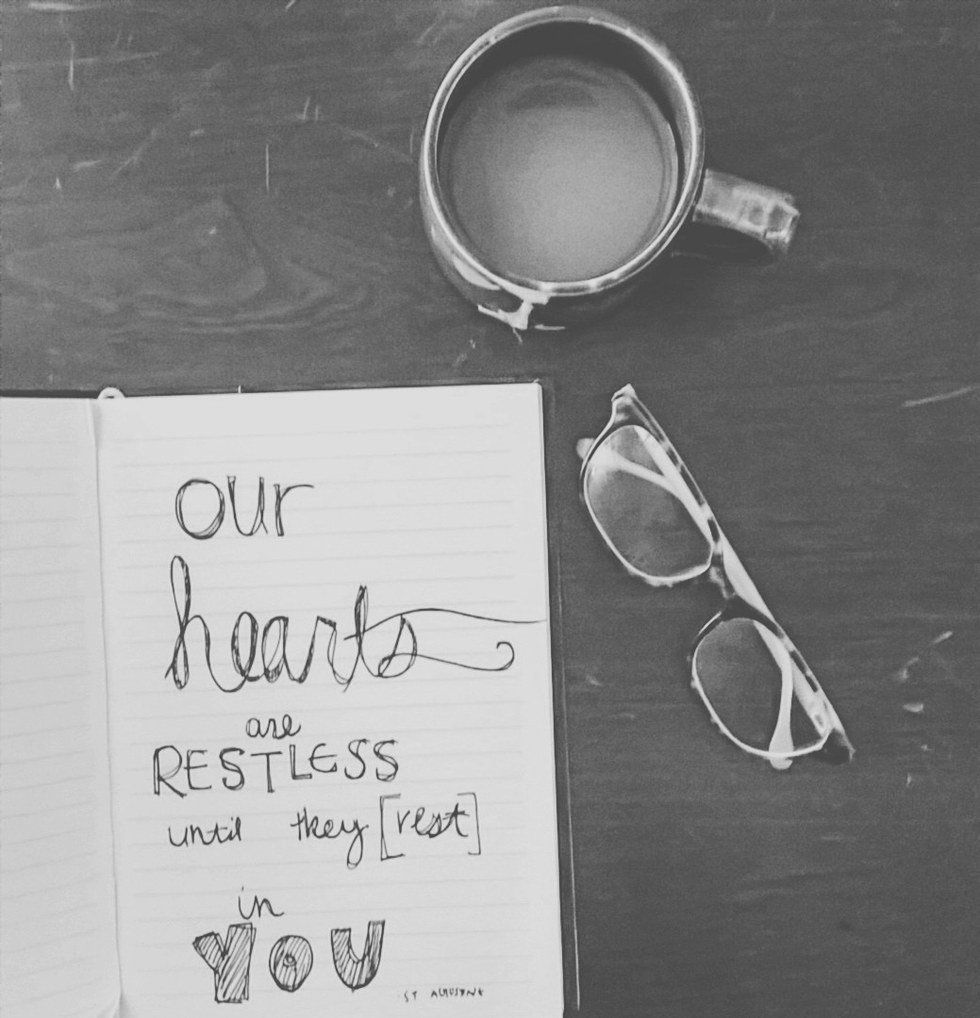 our
hearts
are
RESTLESS
until they [rest]
in
YOU
ST AUGUSTINE